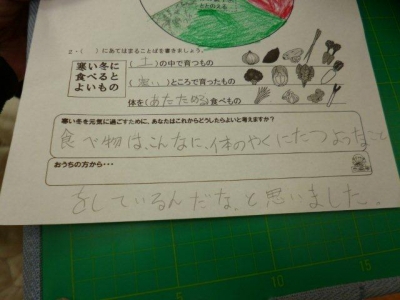 ととのえる
2-(　)にあてはまることばを書きましょう。
寒い冬に
食べると
よいもの
(土)の中で育つもの
(寒い)ところで育ったもの
体を(あたためる)食べもの
寒い冬を元気に過ごすために、あなたはこれからどうしたらよいと考えますか?
食べ物は、こんなに、体のやくにたつようなこと
おうちの方から・・・
をしているんだな、と思いました。
5
10
15